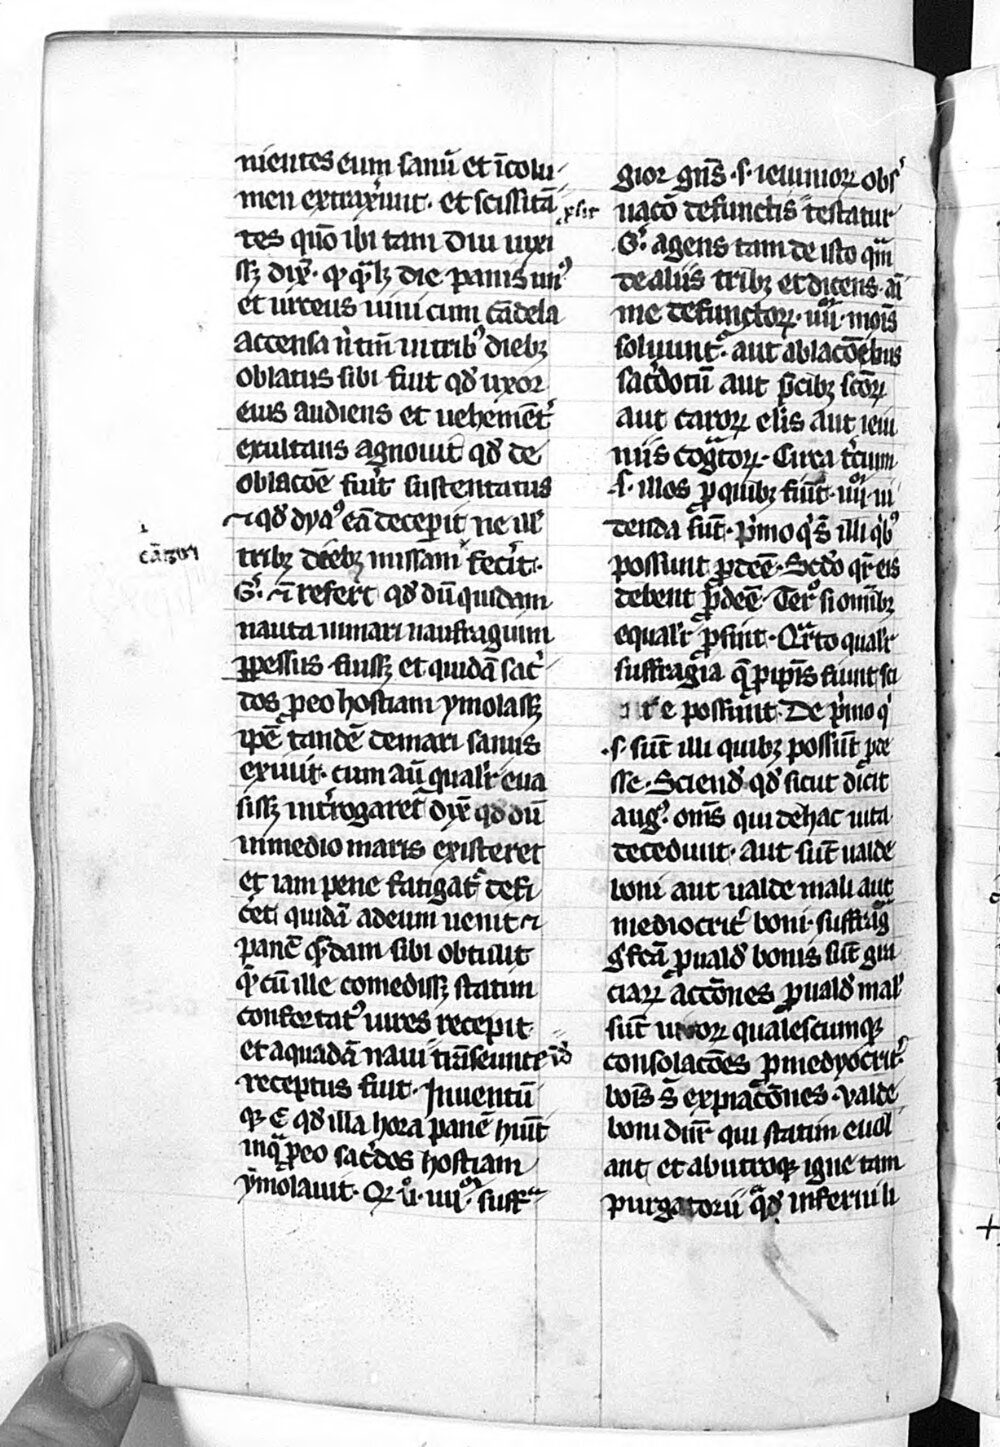 nientes eum sanū et īcolu-
men extraxer̄unt · et scissitā-
tes quō ibi tam diu uixi
ssꝫ dix̄ · ꝙ q̄lꝫ die panis unꝰ
et urceus uini cum cādela
accensa n̄ tm̄ in tribꝰ diebꝫ
oblatus sibi fuit qd̛ uxor
eius audiens et uehemēt̛
exultans agnouit qd̛ de
oblacōe fuit̛ sustentatus
⁊ qd̛ dyaꝰ eā decepit ne ill̛
tribꝫ diebꝫ missam fec̛it ·
G̛ · ⁊ refert qd̛ dū quidam
nauta in mari naufragium
ꝑpessus fuissꝫ et quidā sac̛-
dos pro eo hostiam ymolassꝫ
ip̄e tandē de mari sanus
exiuit · cum aū qualr̛ eua
sissꝫ int̛rogaret̛ dix̄ qd̛ dū
in medio maris existeret
et iam pene fatigat̛ defi
c̛et quidā ad eum uenit ⁊
panē q̄dam sibi obtulit
q̄ cū ille comedissꝫ statim
confortatꝰ uires recepit
et a quadā naui trā̄seunte
receptus fuit · Inuentū
qꝫ ē qd̛ illa hora panē hīut
in qua pro eo sac̛dos hostiam
ymolauit · Qr u̓ · iiii · suff̄
gior gn̄s · s · ieiuniorꝫ obs̛
uacō defunctis testatur
G̛ · agens tam de isto qm̄
de aliis tribꝫ et dicens · ai
me defunctorꝫ · iiii · mois
soluunt̛ · aut ablacōēbus
sac̛dotū aut p̄cibꝫ sc̄orꝫ
aut carorꝫ elis aut ieiu
niis cogᵃtorꝫ · Circa t̛cium
· s · illos pro quibꝫ fiūt · iiii · ui
denda sūt · p̛mo q̄ s̄ illi qͥbꝰ
possunt prodeē · Scd̛o qr̄ eis
debent prodeē · Ter̛ si omibꝫ
equalr̛ prosint · Qᵃrto qualr̛
suffragia q̄ pro ip̄is fiunt sci
re possunt · De p̛mo qͥ
· s · sūt illi quibꝫ possūt prode
sse · Sciend̛ qd̛ sicut dicit
augꝰ om̄s qui de hac uita
decedunt · aut sūt ualde
boni aut ualde mali aut
mediocrit̛ boni · suffrag
g̛ fcā pro uald̛ bonis sūt gra
ciarꝫ accōnes pro uald̛ mal̛
sūt uiuorꝫ qualescumqꝫ
consolacōes pro medyocrit̛
bois s̄ expiacōnes · valde
boni dūr qui statim euol
ant et ab utroqꝫ igne tam
purgatorii qᵃꝫ inferni li